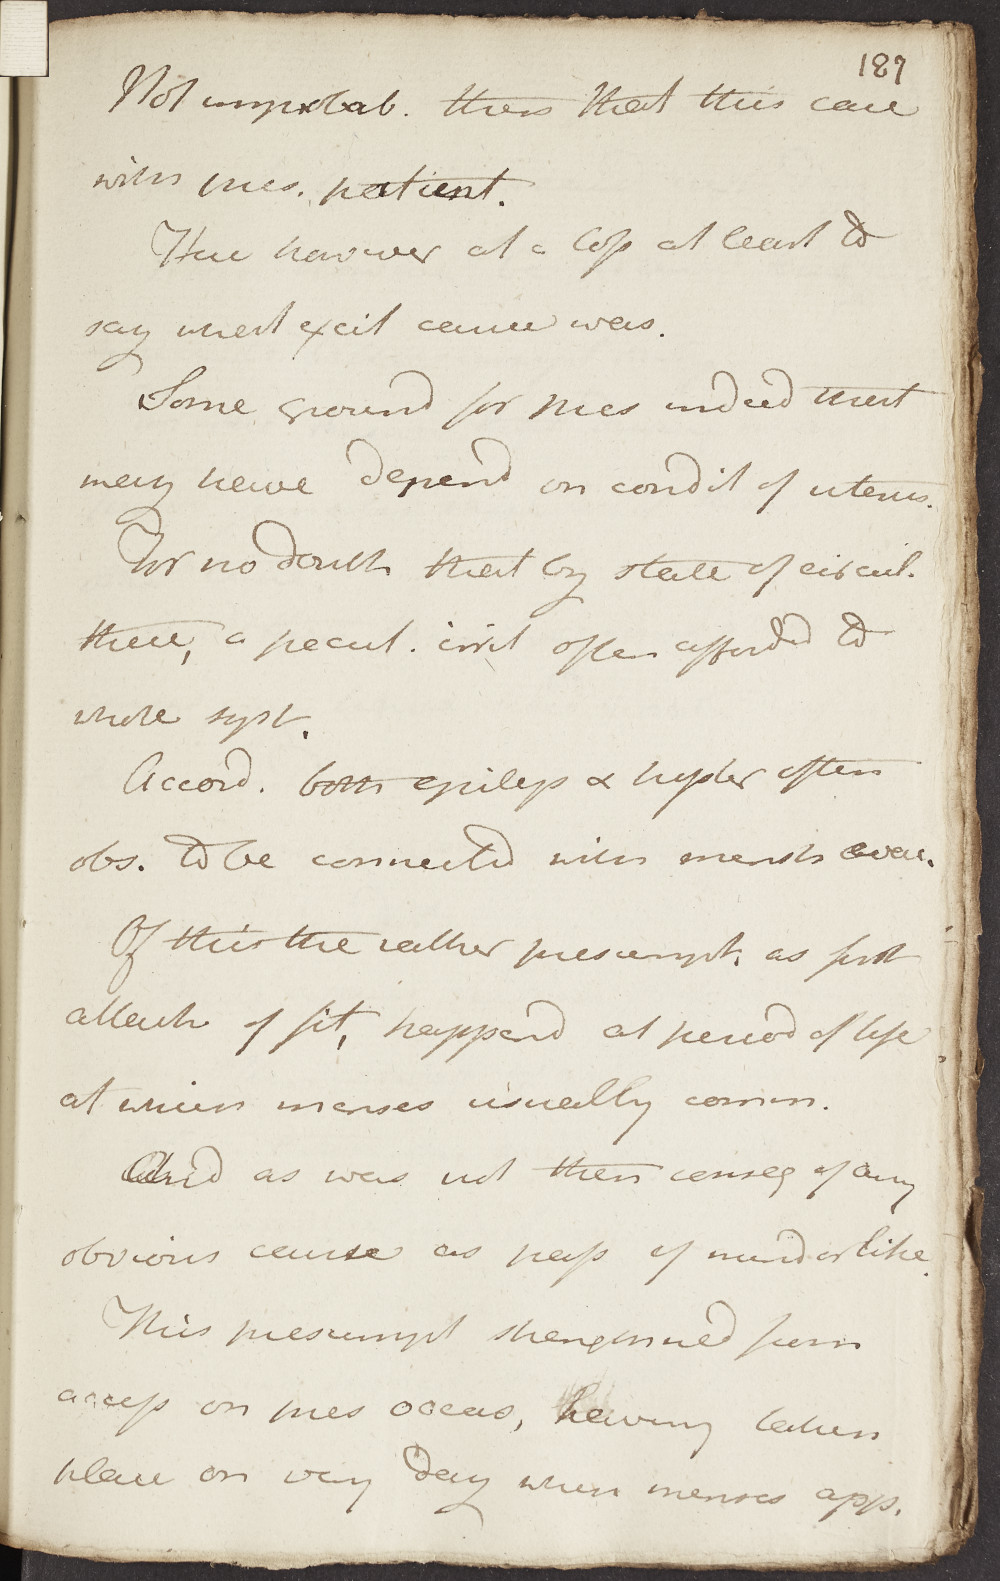 187
Not improbab. then that this case
with pres. patient.
Here however at a loss at least to
say what excit cause was.
Some ground for pres indeed that
may have depend on condit of uterus.
For no doubt that by state of circul.
there, a pecul. irrit often afforded to
whole syst.
Accord. both epileps & hyster often
obs. to be connected with mensts evac.
Of this the rather presumpt. as first
attack of fit, happend at period of life
at which menses usually comm.
And as was not then conseq of any
obvious cause as pass of mind or like.
This presumpt strengthned from
access on pres occas, having taken
place on very day when menses app.